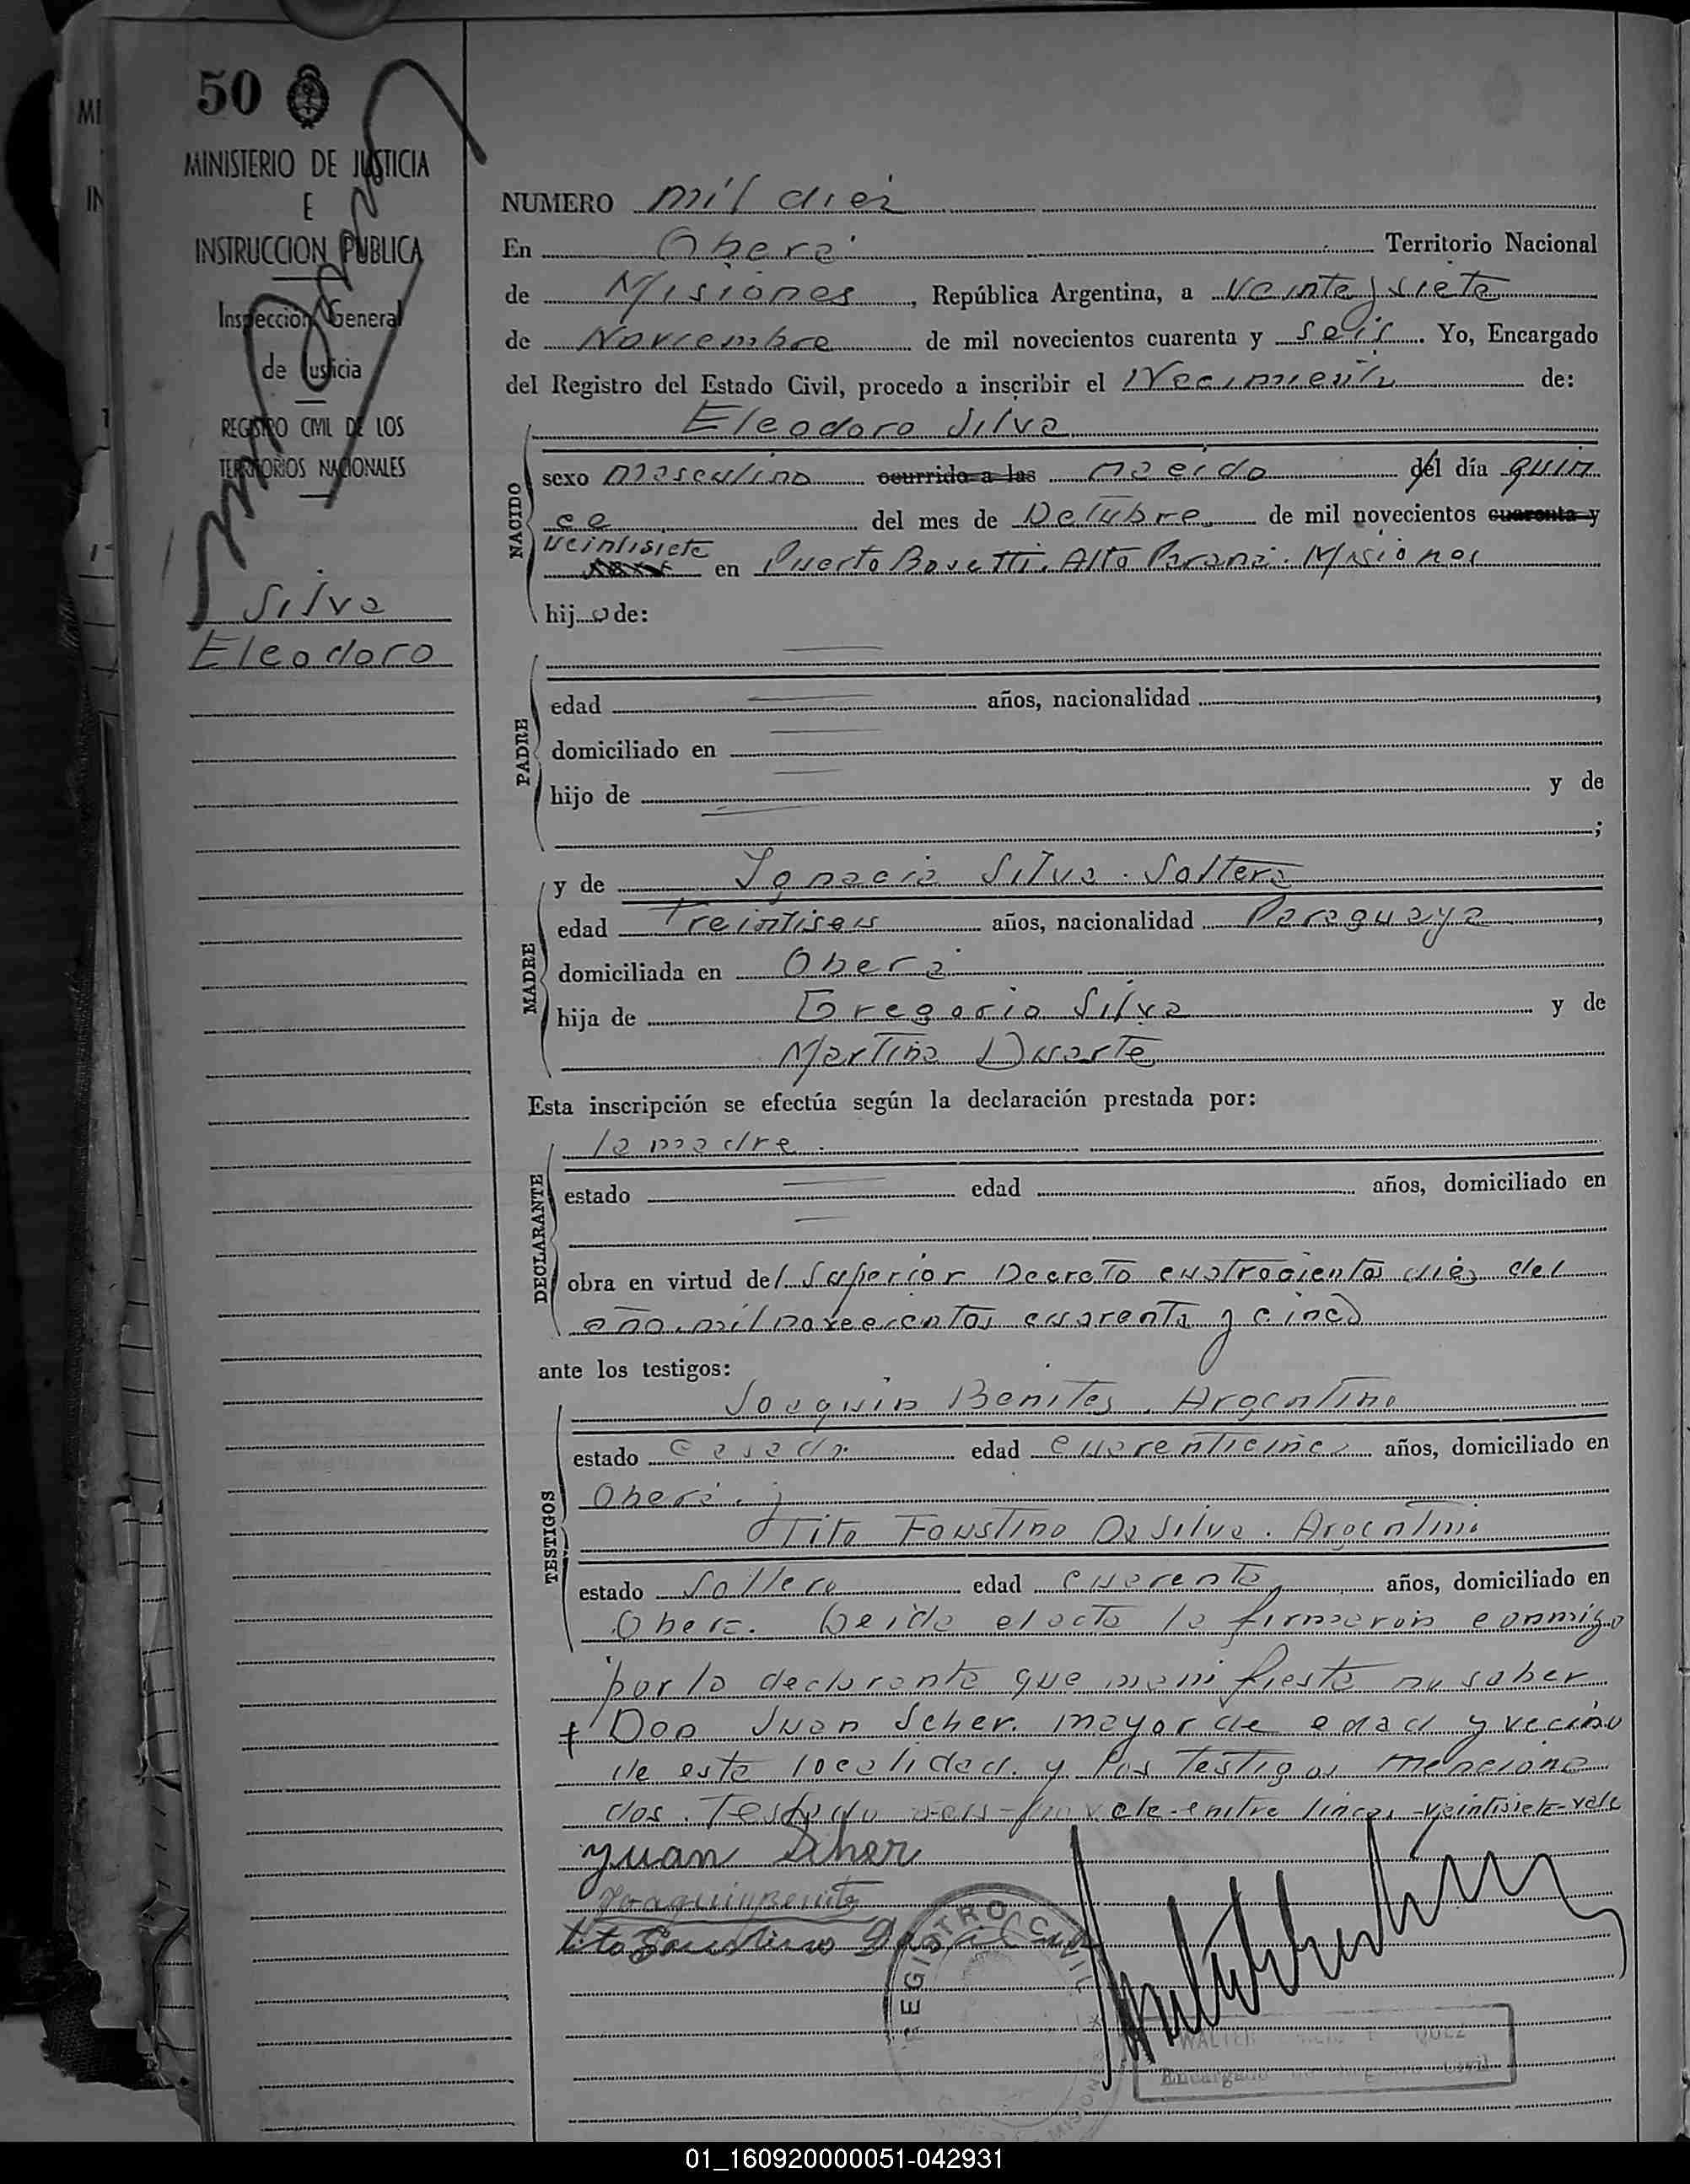 50
MINISTERIO DE JUSTICIA
E
INSTRUCCION PUBLICA
Inspección General
de Justicia
REGISTRO CIVIL DE LOS
TERRITORIOS NACIONALES
Silva
Eleodoro
NUMERO mil diez
En Oberá Territorio Nacional
de Misiones, República Argentina, a veinte y siete
de Noviembre de mil novecientos cuarenta y seis. Yo, Encargado
del Registro del Estado Civil, procedo a inscribir el Nacimiento de:
Eleodoro Silva
NACIDO
sexo masculino ocurrido a las nacido del día quin
ce del mes de Octubre de mil novecientos cuarenta y
veintisiete
en Puerto Bosetti. Alto Paraná. Misiones
hijo de:
PADRE
edad años, nacionalidad ,
domiciliado en
hijo de y de
;
MADRE
y de Ignacia Silva. Soltera
edad Treintiseis años, nacionalidad Paraguaya,
domiciliada en Oberá
hija de Gregorio Silva y de
Martina Duarte
Esta inscripción se efectúa según la declaración prestada por:
DECLARANTE
la madre.
estado edad años, domiciliado en
obra en virtud del Superior Decreto cuatrocientos diez del
año mil novecientos cuarenta y cinco
ante los testigos:
TESTIGOS
Joaquin Benites. Argentino
estado Casado edad cuarenticinco años, domiciliado en
Oberá. y
Tito Faustino Da Silva. Argentino
estado Soltero edad cuarenta años, domiciliado en
Oberá. Leida el acta la firmaron conmigo
por la declarante que manifiesta no saber
+ Don Juan Scher. mayor de edad y vecino
de esta localidad. y los testigos menciona
dos. Testado seis-no vale-entre lineas-veintisiete-vale
Juan Scher
Joaquin Benitez
Tito Faustino Da Silva
REGISTRO CIVIL
MISIONES
WALTER
Encargado de Registro Civil
01_160920000051-042931